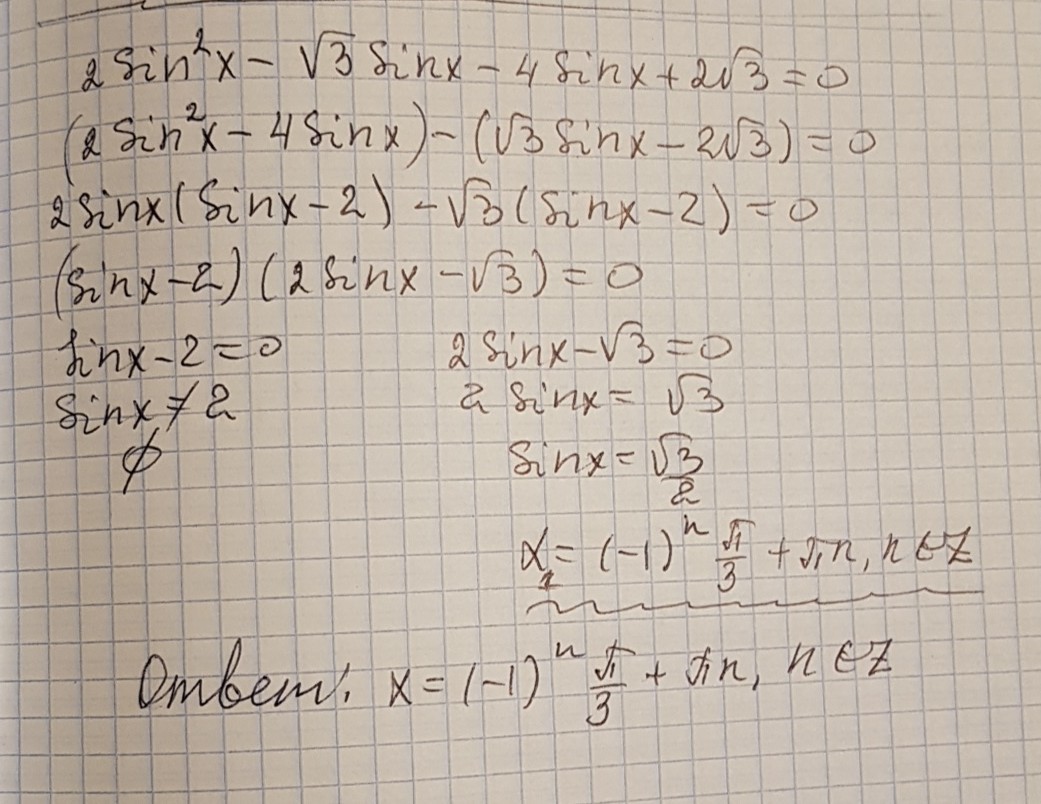 2 sin²x − √3 sinx − 4 sinx + 2√3 = 0
(2 sin²x − 4 sinx) − (√3 sinx − 2√3) = 0
2 sinx (sinx − 2) − √3 (sinx − 2) = 0
(sinx − 2) (2 sinx − √3) = 0
sinx − 2 = 0
sinx ≠ 2
∅
2 sinx − √3 = 0
2 sinx = √3
sinx = √3/2
x₁ = (−1)ⁿ π/3 + πn, n ∈ Z
Ответ: x = (−1)ⁿ π/3 + πn, n ∈ Z